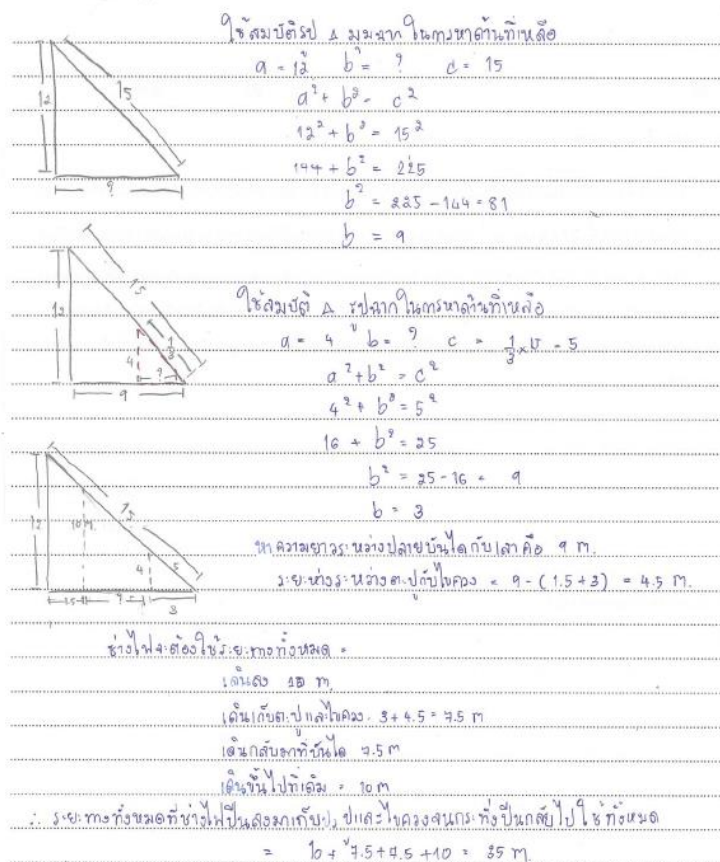 ใช้สมบัติรูป Δ มุมฉาก ในการหาด้านที่เหลือ
a = 12 b = ? c = 15
a² + b² = c²
12² + b² = 15²
144 + b² = 225
b² = 225 - 144 = 81
b = 9
12
15
?
ใช้สมบัติ Δ รูปฉาก ในการหาด้านที่เหลือ
a = 4 b = ? c = 1/3 × 15 = 5
a² + b² = c²
4² + b² = 5²
16 + b² = 25
b² = 25 - 16 = 9
b = 3
12
15
1/3
4
?
9
หาความยาวระหว่างปลายบันไดกับเสาคือ 9 m.
ระยะห่างระหว่างตะปูกับไขควง = 9 - (1.5 + 3) = 4.5 m.
12
15
10 m.
4
5
1.5
?
3
ช่างไฟจะต้องใช้ระยะทางทั้งหมด =
เดินลง 10 m.
เดินเก็บตะปูและไขควง = 3 + 4.5 = 7.5 m
เดินกลับมาที่บันได 7.5 m
เดินขึ้นไปที่เดิม = 10 m
∴ ระยะทางทั้งหมดที่ช่างไฟปีนลงมาเก็บตะปูและไขควงจนกระทั่งปีนกลับไปใช้ทั้งหมด
= 10 + 7.5 + 7.5 + 10 = 35 m.